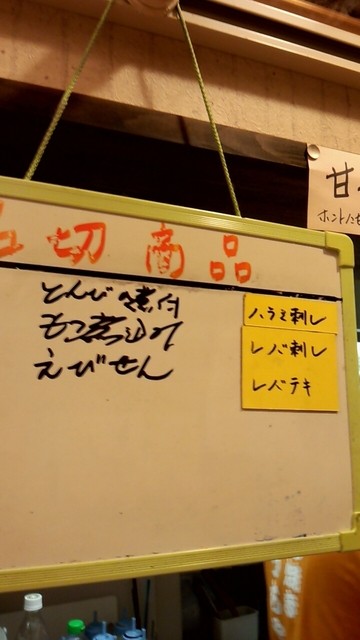 切商品
とんび煮付
もつ煮込み
えびせん
ハラミ刺し
レバ刺し
レバテキ
甘
ホントに